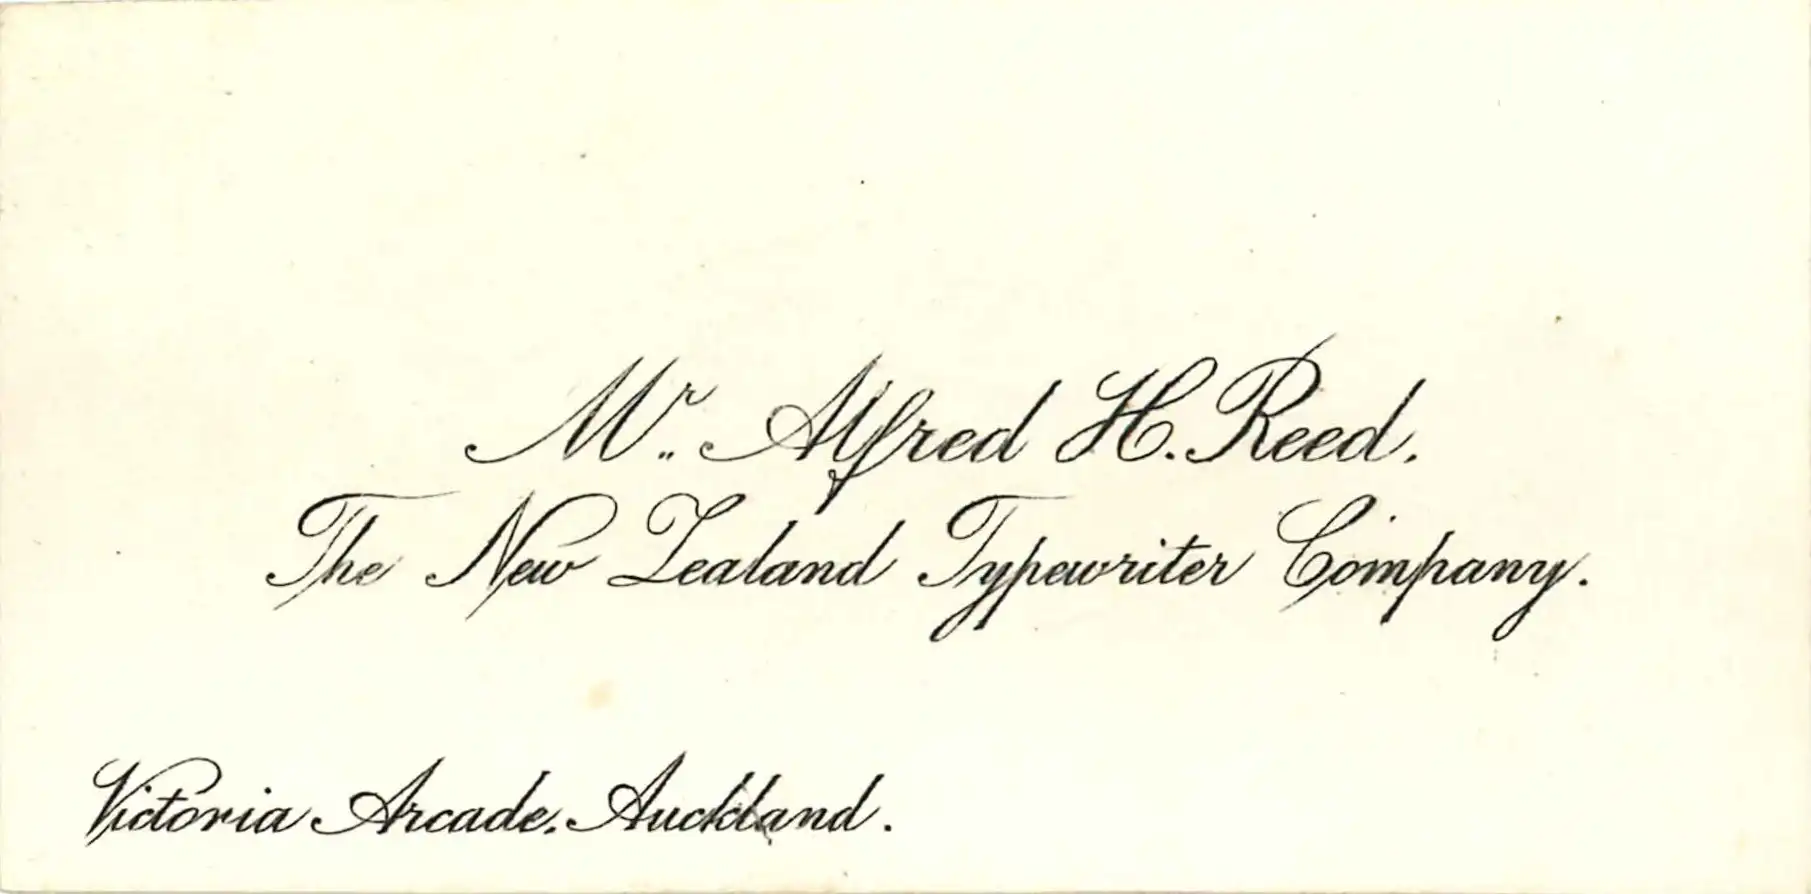 Mr. Alfred H. Reed.
The New Zealand Typewriter Company.
Victoria Arcade. Auckland.